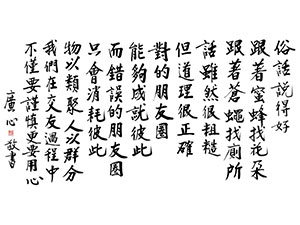 俗話說得好
跟著蜜蜂找花朵
跟著蒼蠅找廁所
話雖然很粗糙
但道理很正確
對的朋友圈
能夠成就彼此
而錯誤的朋友圈
只會消耗彼此
物以類聚人以群分
我們在交友過程中
不僅要謹慎更要用心
廣心敬書